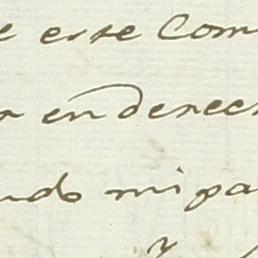 e este Com
r en derec
ndo mi pa
y